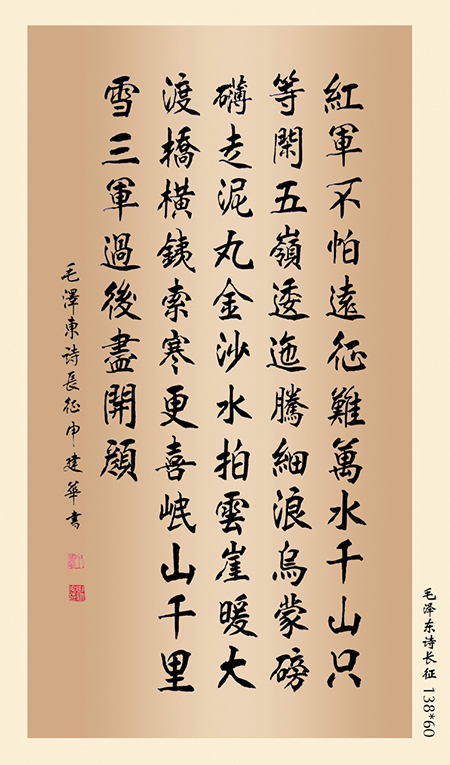 紅軍不怕遠征難萬水千山只
等閑五嶺逶迤騰細浪烏蒙磅
礴走泥丸金沙水拍雲崖暖大
渡橋橫銕索寒更喜岷山千里
雪三軍過後盡開顔
毛澤東诗長征申建華書
毛泽东诗长征 138*60